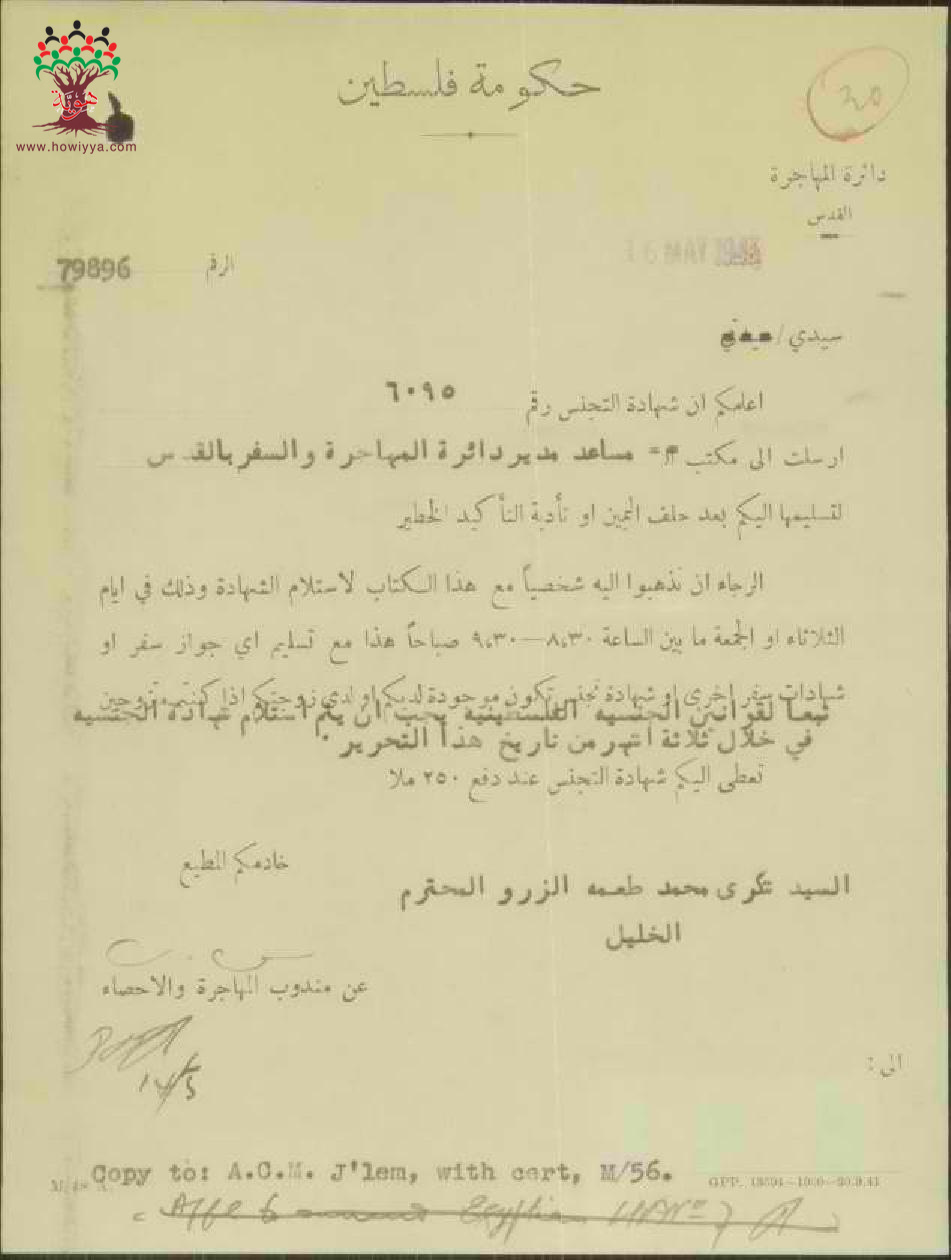 هوية
www.howiyya.com
حكومة فلسطين
20
دائرة المهاجرة
القدس
16 MAY
الرقم 79896
سيدي /
اعلمكم ان شهادة التجنس رقم ٦٠٩٥
ارسلت الى مكتب مساعد مدير دائرة المهاجرة والسفر بالقدس
لتسليمها اليكم بعد حلف اليمين او تأدية التأكيد الخطير
الرجاء ان تذهبوا اليه شخصياً مع هذا الكتاب لاستلام الشهادة وذلك في ايام
الثلاثاء او الجمعة ما بين الساعة ٨،٣٠—٩،٣٠ صباحاً هذا مع تسليم اي جواز سفر او
شهادات سفر اخرى او شهادة تجنس تكون موجودة لديكم او لدى زوجتكم اذا كنتم متزوجين
تبعا لقوانين الجنسيه الفلسطينيه يجب ان يتم استلام شهادة الجنسيه
في خلال ثلاثة اشهر من تاريخ هذا التحرير .
تعطى اليكم شهادة التجنس عند دفع ٢٥٠ ملا
خادمكم المطيع
السيد محمد طعمه الزرو المحترم
الخليل
عن مندوب المهاجرة والاحصاء
١٧/٥
الى :
Copy to: A.C.M. J'lem, with cert, M/56.
GPP. 13594—1000—20.9.41
Egyptian